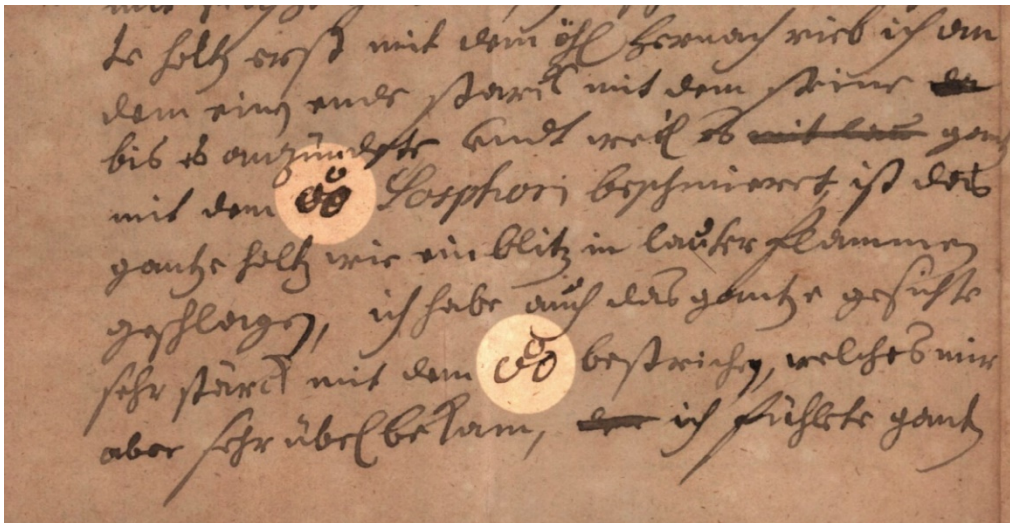 te holtz erst mit dem öhl hernach rieb ich an
dem einen ende starck mit dem steine
bis es anzündete undt weil es gantz
mit dem 🝆 Posphori beschmieret, ist das
gantze holtz wie ein blitz in lauter flammen
geschlagen, ich habe auch das gantze gesichte
sehr starck mit dem 🝆 bestrichen, welches mir
aber sehr übel bekam, ich fühlete gantz